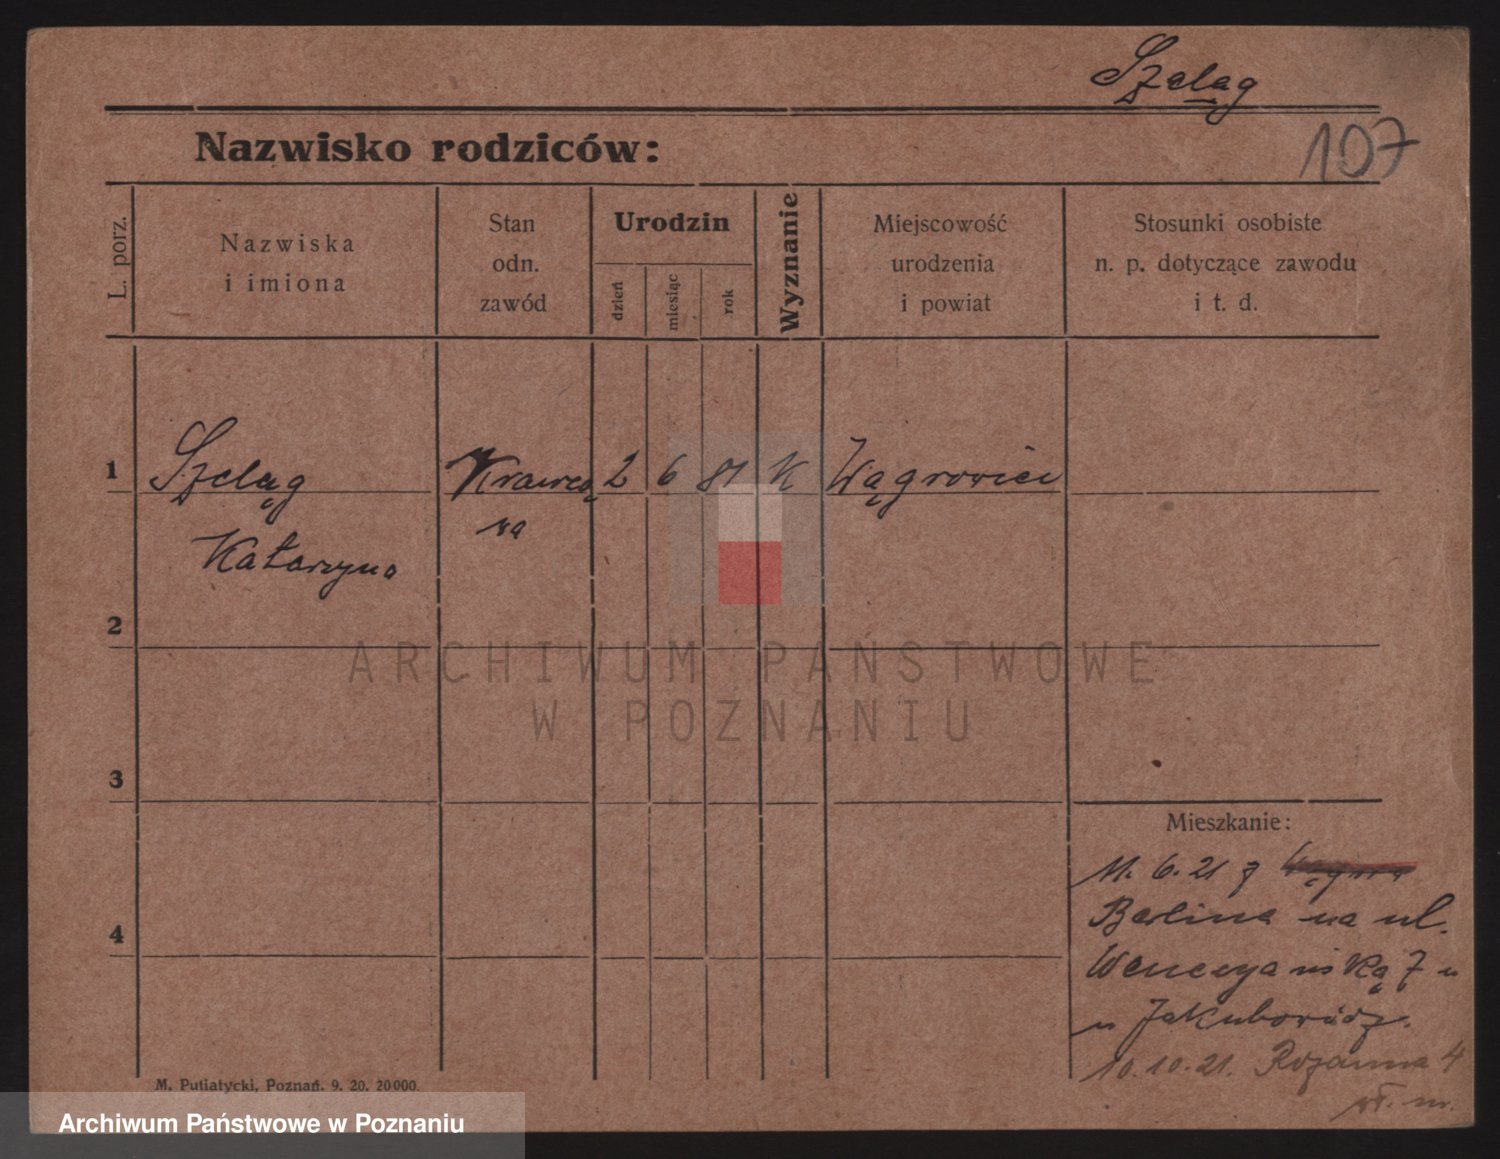 Szeląg
107
Nazwisko rodziców:
L. porz.
Nazwiska
i imiona
Stan
odn.
zawód
Urodzin
dzień
miesiąc
rok
Wyznanie
Miejscowość
urodzenia
i powiat
Stosunki osobiste
n. p. dotyczące zawodu
i t. d.
1 Szeląg Krawco 2 6 81 K Wągrowiec
wa
Katarzyna
2
ARCHIWUM PAŃSTWOWE
W POZNANIU
3
Mieszkanie:
11. 6. 21 z
4 Berlina na ul.
Wenecyańską 7
u Jakubowicz.
10. 10. 21. Różanna 4
wł. m.
M. Putiatycki, Poznań. 9. 20. 20000.
Archiwum Państwowe w Poznaniu